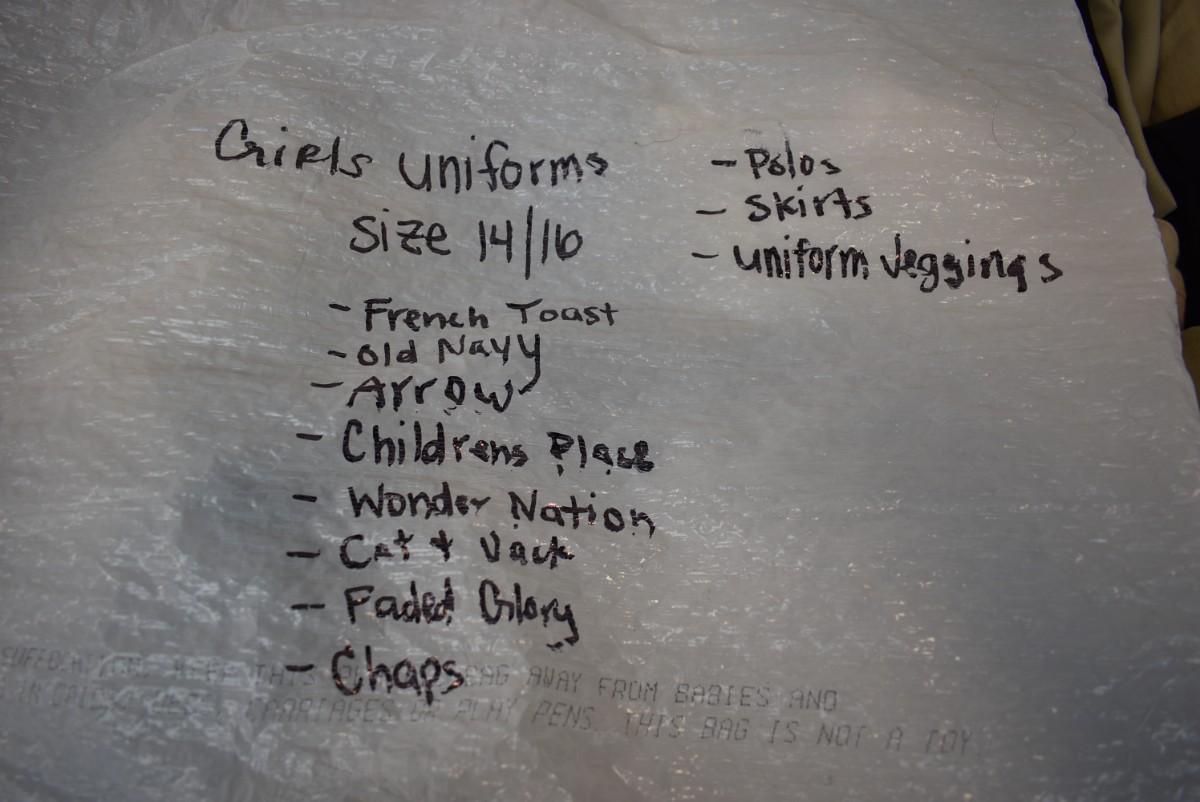 Girls uniforms
Size 14/16
- French Toast
- Old Navy
- Arrow
- Childrens Place
- Wonder Nation
- Cat + Jack
- Faded Glory
- Chaps
- Polos
- Skirts
- uniform Jeggings
SUFFOCATION KEEP THIS BAG AWAY FROM BABIES AND
CARRIAGES OR PLAY PENS. THIS BAG IS NOT A TOY